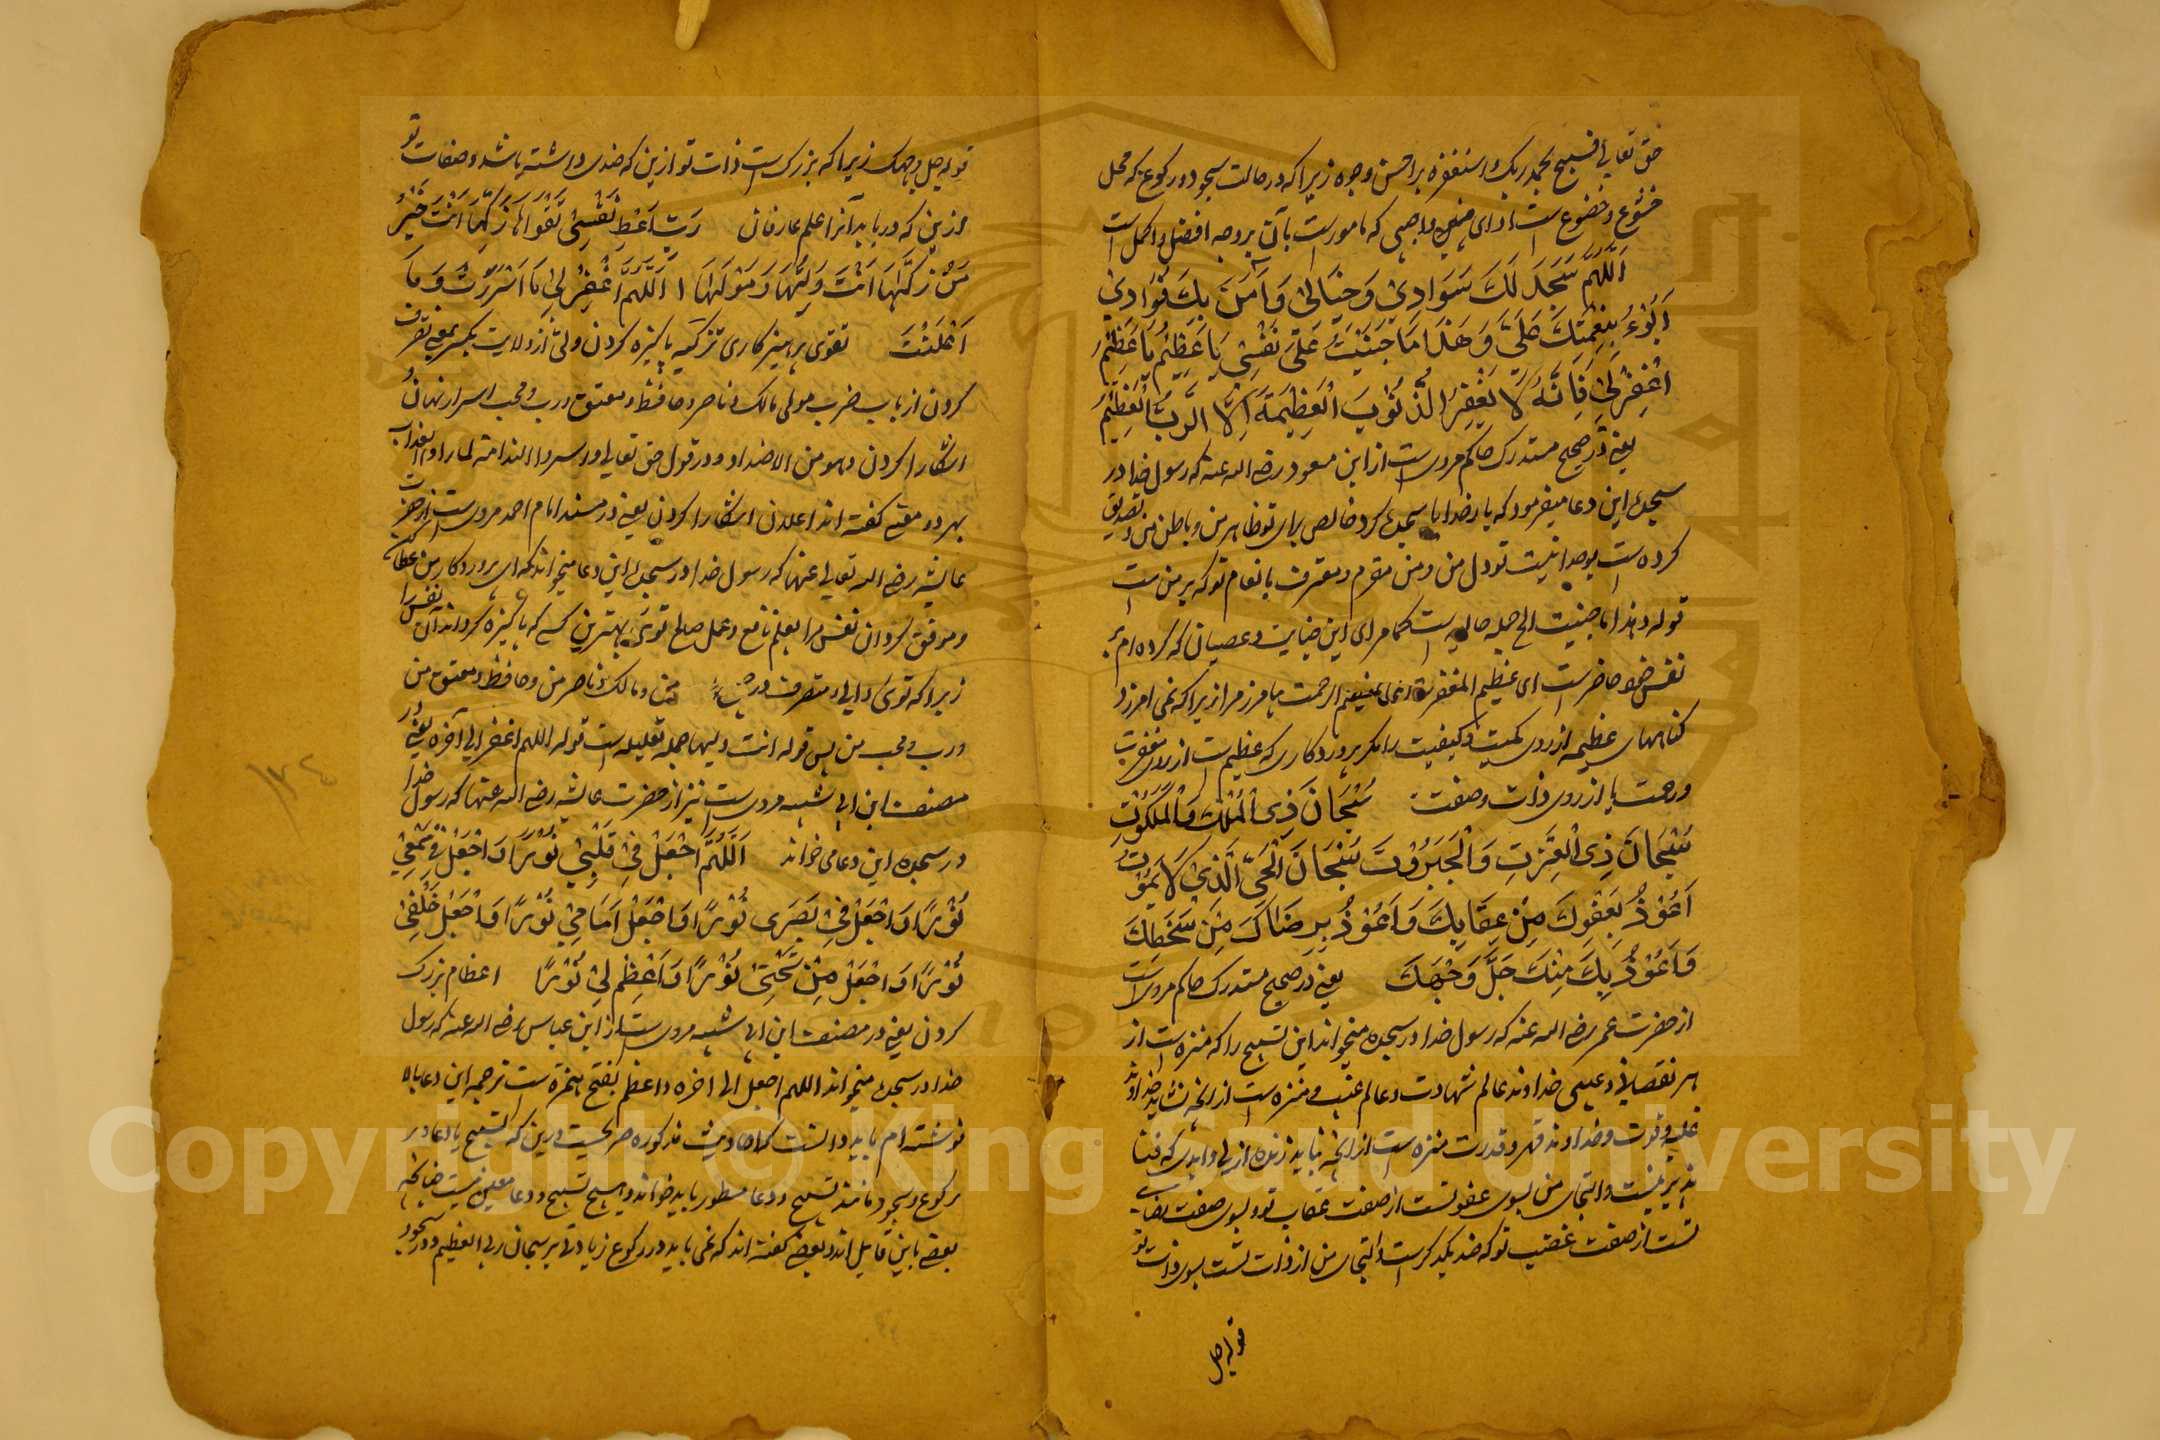 حق تعالی فسبح بحمد ربک و استغفره بر احسن وجوه زیرا که در حالت سجود و رکوع که محل
خشوع و خضوع ست ادای واجبی که مامورست بآن بر وجه افضل و اکمل است
اَللّٰهُمَّ سَجَدَ لَكَ سَوَادِيْ وَخَيَالِيْ وَاٰمَنَ بِكَ فُوَادِيْ
اَبُوْءُ بِنِعْمَتِكَ عَلَيَّ وَهٰذَا مَا جَنَيْتُ عَلٰى نَفْسِيْ يَا عَظِيْمُ يَا عَظِيْمُ
اغْفِرْ لِيْ فَاِنَّهُ لَا يَغْفِرُ الذُّنُوْبَ الْعَظِيْمَةَ اِلَّا الرَّبُّ الْعَظِيْمُ
یعنی در صحیح مستدرک حاکم مروی ست از ابن مسعود رضی الله عنه که رسول خدا در
سجدۀ این دعا میفرمود که بار خدایا سجدۀ کرد خالص برای تو ظاهر من و باطن من و تصدیق
کرده ست بوحدانیت تو دل من و من مقرم و معترف بانعام تو که بر من ست
قوله و هذا ما جنیت الخ جمله حالیه ست این جنایت و عصیان که کرده ام بر
نفس خود حاضرست ای عظیم المغفرة ای عظیم الرحمت بیامرز مرا زیرا که نمی امرزد
کناههای عظیمه از روی کمیت و کیفیت را مکر پروردکاری که عظیم ست از روی مغفرت
و رحمت یا از روی ذات و صفت سُبْحَانَ ذِی الْمُلْكِ وَالْمَلَكُوْتِ
سُبْحَانَ ذِی الْعِزَّتِ وَالْجَبَرُوْتِ سُبْحَانَ الْحَيِّ الَّذِيْ لَا يَمُوْتُ
اَعُوْذُ بِعَفْوِكَ مِنْ عِقَابِكَ وَاَعُوْذُ بِرِضَاكَ مِنْ سَخَطِكَ
وَاَعُوْذُ بِكَ مِنْكَ جَلَّ وَجْهَكَ یعنی در صحیح مستدرک حاکم مروی ست
از حضرت عمر رضی الله عنه که رسول خدا در سجده میخواند این تسبیح را که منزه ست از
هر نقصانی و عیبی خداوند عالم شهادت و عالم غیب و منزه ست از انچه نشاید خداوند
غلبه و قوت و خداوند قهر و قدرت منزه ست از انچه نباید زنده ازلی و ابدی که فنا
پذیر نیست و التجای من بسوی عفو تست از صفت عقاب تو و بسوی صفت رضای
تست از صفت غضب تو که ضد یکدیکرست و التجای من از ذات تست بسوی ذات تو
قوله جل
قوله جل وجهک زیرا که بزرک ست ذات تو ازین که ضدی داشته باشد و صفات تو
ازین که دریابد آنرا علم عارفان رَبِّ اَعْطِ نَفْسِيْ تَقْوَاهَا زَكِّهَا اَنْتَ خَيْرُ
مَنْ زَكّٰهَا اَنْتَ وَلِيُّهَا وَمَوْلٰهَا اَللّٰهُمَّ اغْفِرْ لِيْ مَا اَسْرَرْتُ وَمَا
اَعْلَنْتُ تقوی پرهیزکاری تزکیه پاکیزه کردن ولی از ولایت بکسر بمعنی تصرف
کردن از باب ضرب مولی مالک و ناصر و حافظ و معتق و رب و محب اسرار نهان و
اشکارا کردن و هو من الاضداد و در قول حق تعالی و اسروا الندامة لما راوا العذاب
بهر دو معنی کفته اند اعلان اشکارا کردن یعنی در مسند امام احمد مروی ست از حضرت
عایشه رضی الله تعالی عنها که رسول خدا در سجدۀ این دعا میخواند که ای پروردکار من عطا کن
و موفق کردان نفس مرا بعلم نافع و عمل صالح توی بهترین کسی که پاکیزه کرداند آن نفس را
زیرا که توی والی و متصرف در من و مالک و ناصر من و حافظ و معتق من
و رب و محب من پس قوله انت ولیها جمله تعلیله ست قوله اللهم اغفر لی الی آخره یعنی در
مصنف ابن ابی شیبه مروی ست نیز از حضرت عایشه رضی الله عنها که رسول خدا
در سجده این دعا می خواند اَللّٰهُمَّ اجْعَلْ فِيْ قَلْبِيْ نُوْرًا وَاجْعَلْ فِيْ سَمْعِيْ
نُوْرًا وَاجْعَلْ فِيْ بَصَرِی نُوْرًا وَاجْعَلْ اَمَامِيْ نُوْرًا وَاجْعَلْ خَلْفِيْ
نُوْرًا وَاجْعَلْ مِنْ تَحْتِيْ نُوْرًا وَاَعْظِمْ لِيْ نُوْرًا اعظام بزرک
کردن یعنی در مصنف ابن ابی شیبه مروی ست از ابن عباس رضی الله عنه که رسول
خدا در سجدۀ میخواند اللهم اجعل الی اخره و اعظم بفتح همزه ست ترجمه این دعا بالا
نوشته ام باید دانست که احادیث مذکوره صریحست درین که تسبیح یا دعا در
رکوع و سجود مانند تسبیح و دعا مسطور باید خواند و هیچ تسبیح و دعا معین نیست چنانچه
بعضی باین قایل اند و بعضی کفته اند که نمی باید در رکوع زیادتی بر سبحان ربی العظیم و در سجود